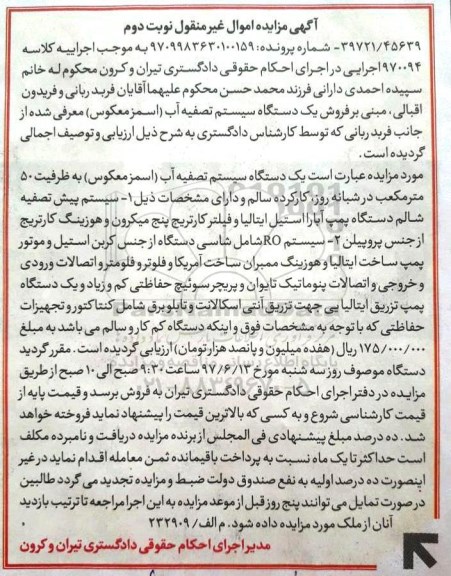 آگهی مزایده اموال غیر منقول نوبت دوم
۳۹۷۲۱/۴۵۶۳۹- شماره پرونده: ۹۷۰۹۹۸۳۶۳۰۱۰۰۱۵۹ به موجب اجراییه کلاسه
۹۷۰۰۹۴ اجرایی در اجرای احکام حقوقی دادگستری تیران و کرون محکوم له خانم
سپیده احمدی دارانی فرزند محمد حسن محکوم علیهما آقایان فربد ربانی و فریدون
اقبالی، مبنی بر فروش یک دستگاه سیستم تصفیه آب (اسمز معکوس) معرفی شده از
جانب فربد ربانی که توسط کارشناس دادگستری به شرح ذیل ارزیابی و توصیف اجمالی
گردیده است.
مورد مزایده عبارت است یک دستگاه سیستم تصفیه آب (اسمز معکوس) به ظرفیت ۵۰
مترمکعب در شبانه روز، کارکرده سالم و دارای مشخصات ذیل ۱- سیستم پیش تصفیه
شالم دستگاه پمپ آبارا استیل ایتالیا و فیلتر کارتریج پنج میکرون و هوزینگ کارتریج
از جنس پروپیلن ۲- سیستم RO شامل شاسی دستگاه از جنس کربن استیل و موتور
پمپ ساخت ایتالیا و هوزینگ ممبران ساخت آمریکا و فلوتر و فلومتر و اتصالات ورودی
و خروجی و اتصالات پنوماتیک تایوان و پریچر سوئیچ حفاظتی کم و زیاد و یک دستگاه
پمپ تزریق ایتالیایی جهت تزریق آنتی اسکالانت و تابلو برق شامل کنتاکتور و تجهیزات
حفاظتی که با توجه به مشخصات فوق و اینکه دستگاه کم کار و سالم می باشد به مبلغ
۱۷۵/۰۰۰/۰۰۰ ریال (هفده میلیون و پانصد هزار تومان) ارزیابی گردیده است. مقرر گردید
دستگاه موصوف روز سه شنبه مورخ ۹۷/۶/۱۳ ساعت ۹:۳۰ صبح الی ۱۰ صبح از طریق
مزایده در دفتر اجرای احکام حقوقی دادگستری تیران به فروش برسد و قیمت پایه از
قیمت کارشناسی شروع و به کسی که بالاترین قیمت را پیشنهاد نماید فروخته خواهد
شد. ده درصد مبلغ پیشنهادی فی المجلس از برنده مزایده دریافت و نامبرده مکلف
است حداکثر تا یک ماه نسبت به پرداخت باقیمانده ثمن معامله اقدام نماید در غیر
اینصورت ده درصد اولیه به نفع صندوق دولت ضبط و مزایده تجدید می گردد طالبین
در صورت تمایل می توانند پنج روز قبل از موعد مزایده به این اجرا مراجعه تا ترتیب بازدید
آنان از ملک مورد مزایده داده شود. م الف/ ۲۳۲۹۰۹
مدیر اجرای احکام حقوقی دادگستری تیران و کرون